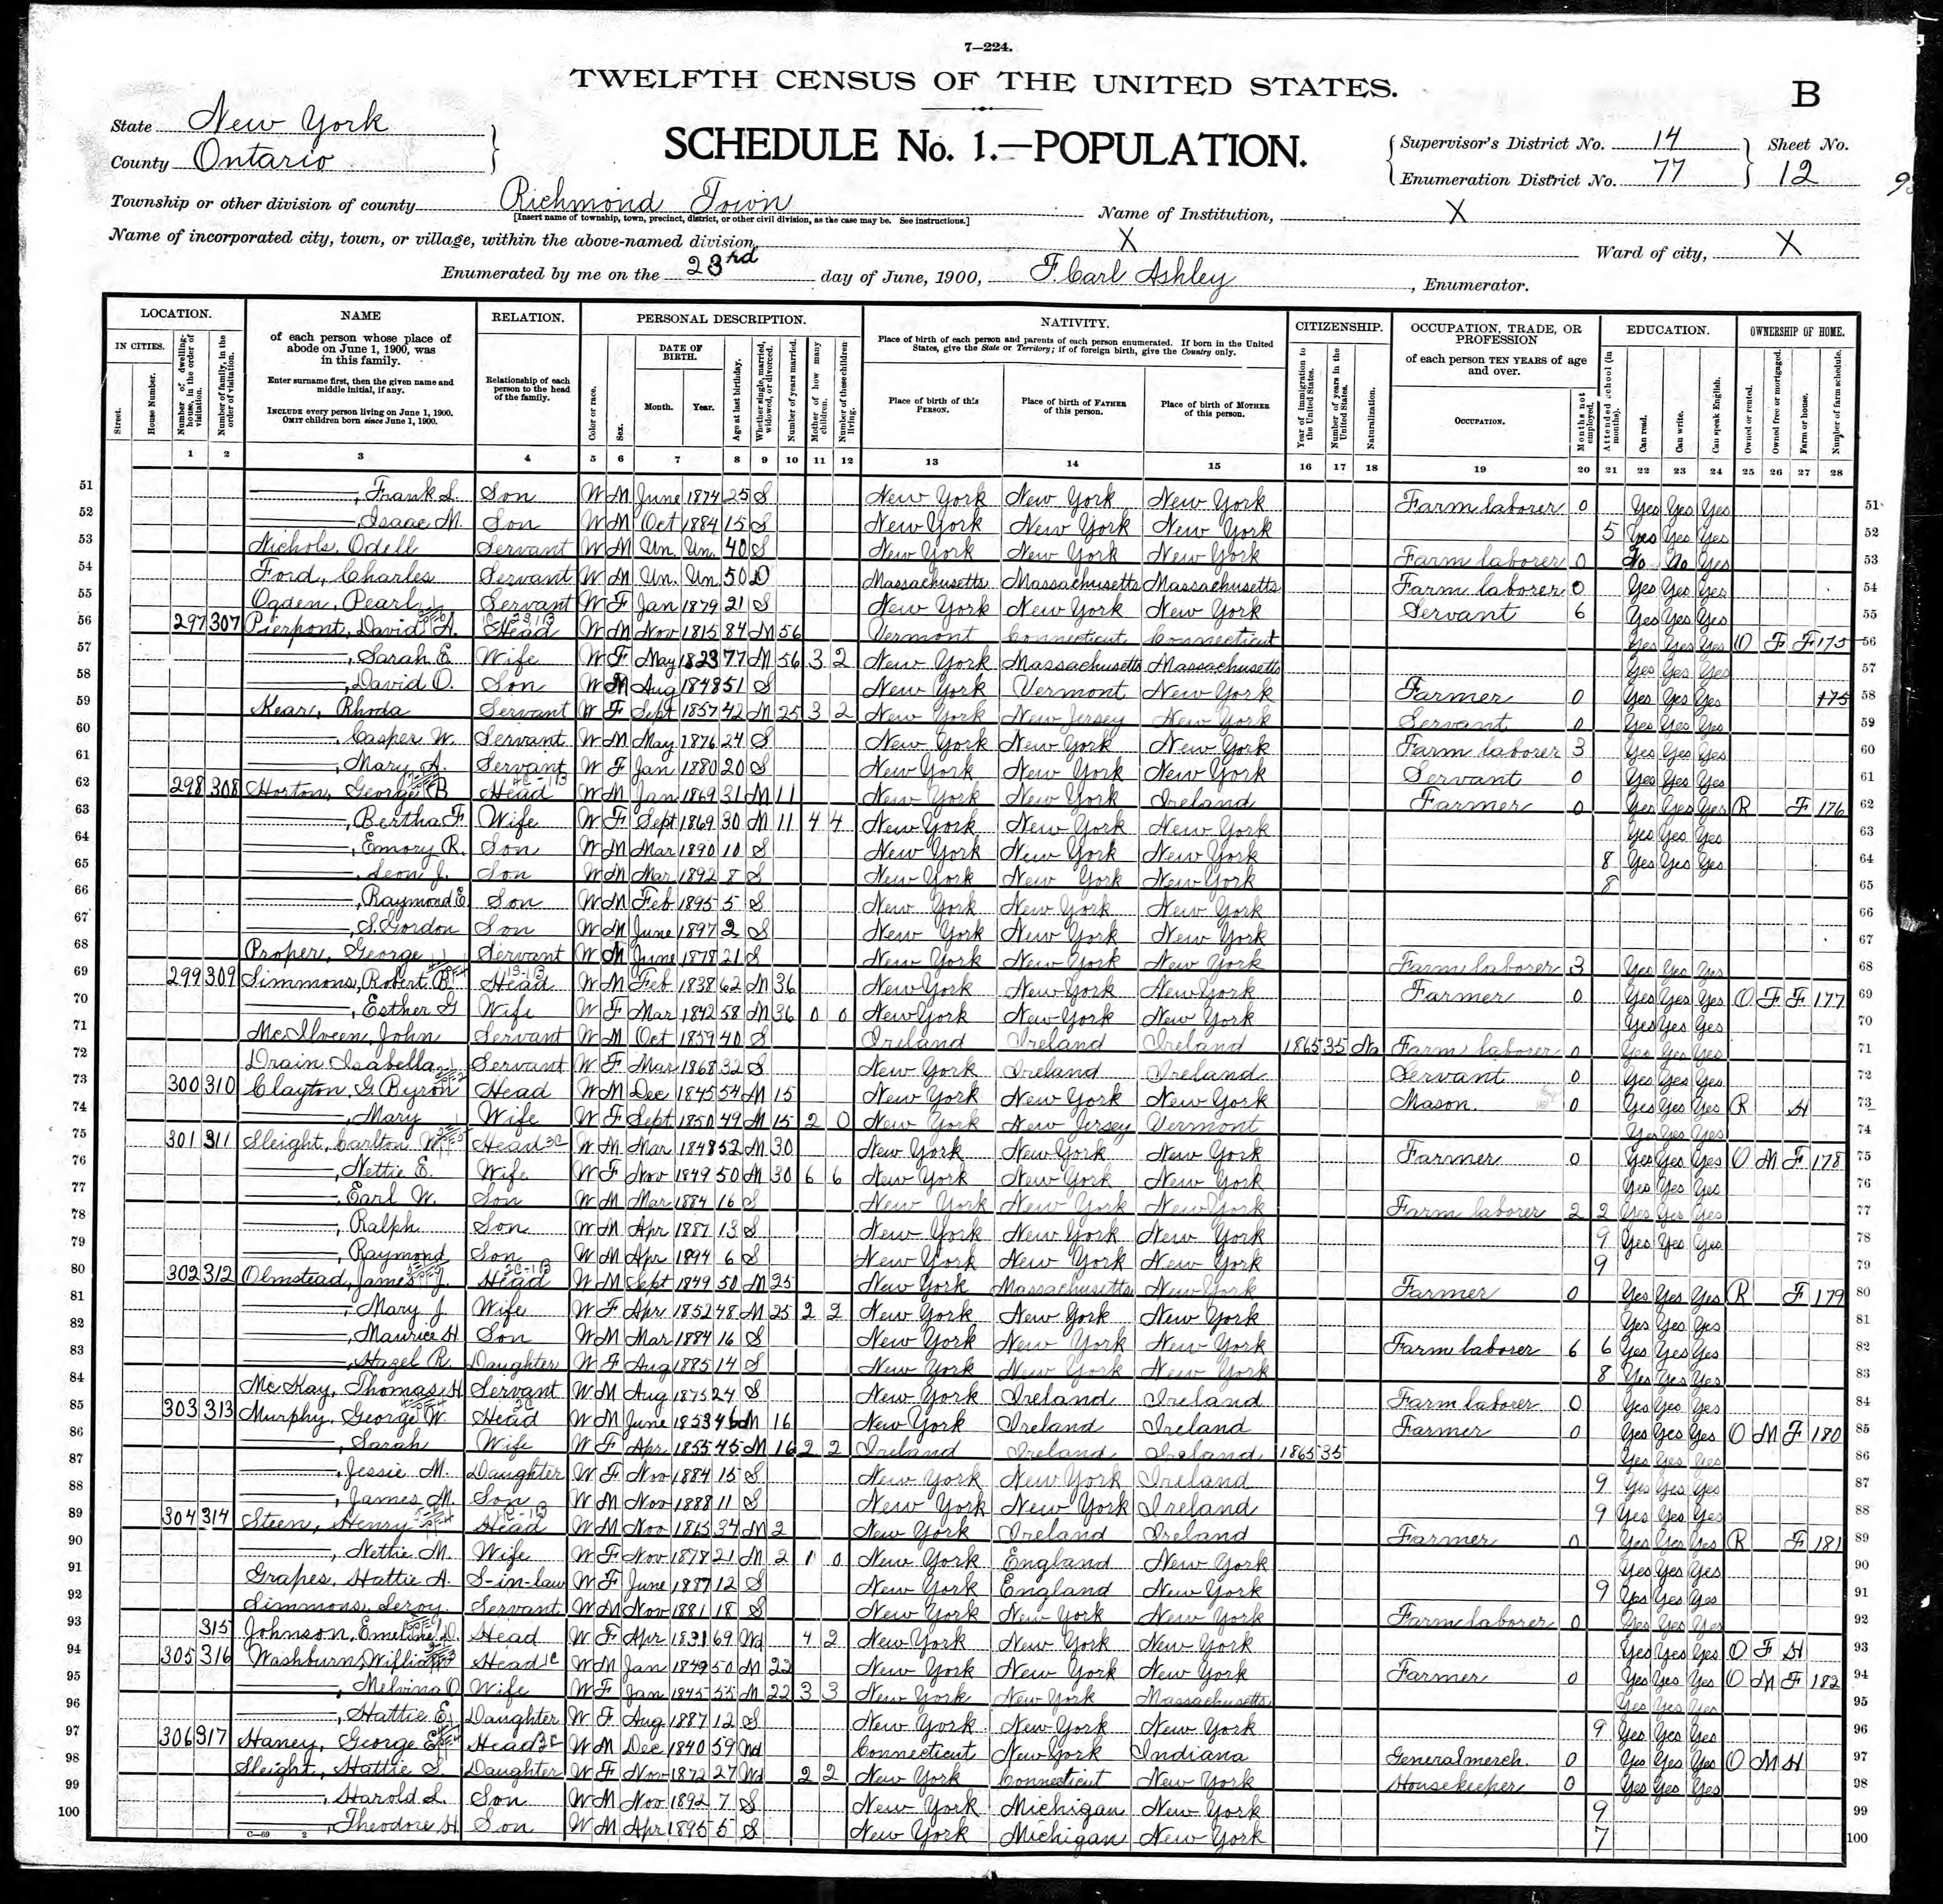 7—224.
TWELFTH CENSUS OF THE UNITED STATES.
B
State New York
County Ontario
SCHEDULE No. 1.—POPULATION.
Supervisor's District No. 14
Enumeration District No. 77
Sheet No.
12
Township or other division of county Richmond Town
[Insert name of township, town, precinct, district, or other civil division, as the case may be. See instructions.]
Name of Institution, X
Name of incorporated city, town, or village, within the above-named division, X
Ward of city, X
Enumerated by me on the 23rd day of June, 1900, F. Carl Ashley, Enumerator.
LOCATION. NAME RELATION. PERSONAL DESCRIPTION. NATIVITY. CITIZENSHIP. OCCUPATION, TRADE, OR PROFESSION EDUCATION. OWNERSHIP OF HOME.
IN CITIES.
Street.
House Number.
Number of dwelling-house, in the order of visitation.
Number of family, in the order of visitation.
of each person whose place of abode on June 1, 1900, was in this family.
Enter surname first, then the given name and middle initial, if any.
INCLUDE every person living on June 1, 1900.
OMIT children born since June 1, 1900.
Relationship of each person to the head of the family.
Color or race.
Sex.
DATE OF BIRTH.
Month. Year.
Age at last birthday.
Whether single, married, widowed, or divorced.
Number of years married.
Mother of how many children.
Number of these children living.
Place of birth of each person and parents of each person enumerated. If born in the United States, give the State or Territory; if of foreign birth, give the Country only.
Place of birth of this PERSON.
Place of birth of FATHER of this person.
Place of birth of MOTHER of this person.
Year of immigration to the United States.
Number of years in the United States.
Naturalization.
of each person TEN YEARS of age and over.
OCCUPATION.
Months not employed.
Attended school (in months).
Can read.
Can write.
Can speak English.
Owned or rented.
Owned free or mortgaged.
Farm or house.
Number of farm schedule.
1 2 3 4 5 6 7 8 9 10 11 12 13 14 15 16 17 18 19 20 21 22 23 24 25 26 27 28
51 ——, Frank L. Son W M June 1874 25 S New York New York New York Farm laborer 0 Yes Yes Yes 51
52 ——, Isaac M. Son W M Oct 1884 15 S New York New York New York 5 Yes Yes Yes 52
53 Nichols, Odell Servant W M Un. Un. 40 S New York New York New York Farm laborer 0 No No Yes 53
54 Ford, Charles Servant W M Un. Un 50 D Massachusetts Massachusetts Massachusetts Farm laborer 0 Yes Yes Yes 54
55 Ogden, Pearl Servant W F Jan 1879 21 S New York New York New York Servant 6 Yes Yes Yes 55
56 297 307 Pierpont, David A. Head W M Nov 1815 84 M 56 Vermont Connecticut Connecticut Yes Yes Yes O F F 175 56
57 ——, Sarah E. Wife W F May 1823 77 M 56 3 2 New York Massachusetts Massachusetts Yes Yes Yes 57
58 ——, David O. Son W M Aug 1848 51 S New York Vermont New York Farmer 0 Yes Yes Yes 175 58
59 Kear, Rhoda Servant W F Sept 1857 42 M 25 3 2 New York New Jersey New York Servant 0 Yes Yes Yes 59
60 ——, Casper W. Servant W M May 1876 24 S New York New York New York Farm laborer 3 Yes Yes Yes 60
61 ——, Mary A. Servant W F Jan 1880 20 S New York New York New York Servant 0 Yes Yes Yes 61
62 298 308 Horton, George B Head W M Jan 1869 31 M 11 New York New York Ireland Farmer 0 Yes Yes Yes R F 176 62
63 ——, Bertha F. Wife W F Sept 1869 30 M 11 4 4 New York New York New York Yes Yes Yes 63
64 ——, Emory R. Son W M Mar 1890 10 S New York New York New York 8 Yes Yes Yes 64
65 ——, Leon J. Son W M Mar 1892 8 S New York New York New York 8 65
66 ——, Raymond E Son W M Feb 1895 5 S New York New York New York 66
67 ——, S. Gordon Son W M June 1897 2 S New York New York New York 67
68 Proper, George Servant W M June 1878 21 S New York New York New York Farm laborer 3 Yes Yes Yes 68
69 299 309 Simmons, Robert B. Head W M Feb 1838 62 M 36 New York New York New York Farmer 0 Yes Yes Yes O F F 177 69
70 ——, Esther G Wife W F Mar 1842 58 M 36 0 0 New York New York New York Yes Yes Yes 70
71 McIlveen, John Servant W M Oct 1859 40 S Ireland Ireland Ireland 1865 35 Na Farm laborer 0 Yes Yes Yes 71
72 Drain Isabella Servant W F Mar 1868 32 S New York Ireland Ireland Servant 0 Yes Yes Yes 72
73 300 310 Clayton, G. Byron Head W M Dec 1845 54 M 15 New York New York New York Mason. 0 Yes Yes Yes R H 73
74 ——, Mary Wife W F Sept 1850 49 M 15 2 0 New York New Jersey Vermont Yes Yes Yes 74
75 301 311 Sleight, Carlton W. Head W M Mar 1848 52 M 30 New York New York New York Farmer 0 Yes Yes Yes O M F 178 75
76 ——, Nettie E. Wife W F Nov 1849 50 M 30 6 6 New York New York New York Yes Yes Yes 76
77 ——, Earl W. Son W M Mar 1884 16 S New York New York New York Farm laborer 2 2 Yes Yes Yes 77
78 ——, Ralph Son W M Apr 1887 13 S New York New York New York 9 Yes Yes Yes 78
79 ——, Raymond Son W M Apr 1894 6 S New York New York New York 9 79
80 302 312 Olmstead, James J. Head W M Sept 1849 50 M 25 New York Massachusetts New York Farmer 0 Yes Yes Yes R F 179 80
81 ——, Mary J. Wife W F Apr 1852 48 M 25 2 2 New York New York New York Yes Yes Yes 81
82 ——, Maurice H Son W M Mar 1884 16 S New York New York New York Farm laborer 6 6 Yes Yes Yes 82
83 ——, Hazel R. Daughter W F Aug 1885 14 S New York New York New York 8 Yes Yes Yes 83
84 McKay, Thomas H Servant W M Aug 1875 24 S New York Ireland Ireland Farm laborer 0 Yes Yes Yes 84
85 303 313 Murphy, George W. Head W M June 1853 46 M 16 New York Ireland Ireland Farmer 0 Yes Yes Yes O M F 180 85
86 ——, Sarah Wife W F Apr 1855 45 M 16 2 2 Ireland Ireland Ireland 1865 35 Yes Yes Yes 86
87 ——, Jessie M. Daughter W F Nov 1884 15 S New York New York Ireland 9 Yes Yes Yes 87
88 ——, James M. Son W M Nov 1888 11 S New York New York Ireland 9 Yes Yes Yes 88
89 304 314 Steen, Henry Head W M Nov 1865 34 M 2 New York Ireland Ireland Farmer 0 Yes Yes Yes R F 181 89
90 ——, Nettie M. Wife W F Nov 1878 21 M 2 1 0 New York England New York Yes Yes Yes 90
91 Grapes, Hattie A. S-in-law W F June 1887 12 S New York England New York 9 Yes Yes Yes 91
92 Simmons, Leroy. Servant W M Nov 1881 18 S New York New York New York Farm laborer 0 Yes Yes Yes 92
93 315 Johnson, Emeline D. Head W F Apr 1831 69 Wd 4 2 New York New York New York Yes Yes Yes O F H 93
94 305 316 Washburn, William Head W M Jan 1849 50 M 22 New York New York New York Farmer 0 Yes Yes Yes O M F 182 94
95 ——, Melvina O Wife W F Jan 1845 55 M 22 3 3 New York New York Massachusetts Yes Yes Yes 95
96 ——, Hattie E. Daughter W F Aug 1887 12 S New York New York New York 9 Yes Yes Yes 96
97 306 317 Haney, George E. Head W M Dec 1840 59 Wd Connecticut New York Indiana General merch. 0 Yes Yes Yes O M H 97
98 Sleight, Hattie S. Daughter W F Nov 1872 27 Wd 2 2 New York Connecticut New York Housekeeper 0 Yes Yes Yes 98
99 ——, Harold L. Son W M Nov 1892 7 S New York Michigan New York 9 99
100 ——, Theodore H. Son W M Apr 1895 5 S New York Michigan New York 7 100
C—69 2